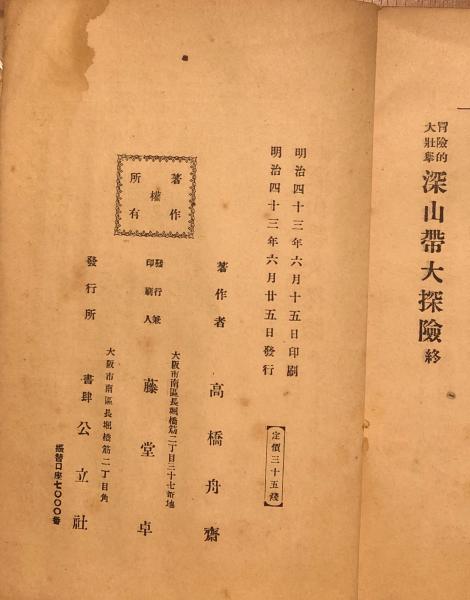 冒險的
大壯擧
深山帶大探險 終
明治四十三年六月十五日印刷
明治四十三年六月廿五日發行
定價三十五錢
著作
權
所有
著作者 高橋舟齋
大阪市南區長堀橋筋二丁目三十七番地
發行兼
印刷人
藤堂卓
大阪市南區長堀橋筋二丁目角
發行所 書肆 公立社
振替口座七〇〇〇番